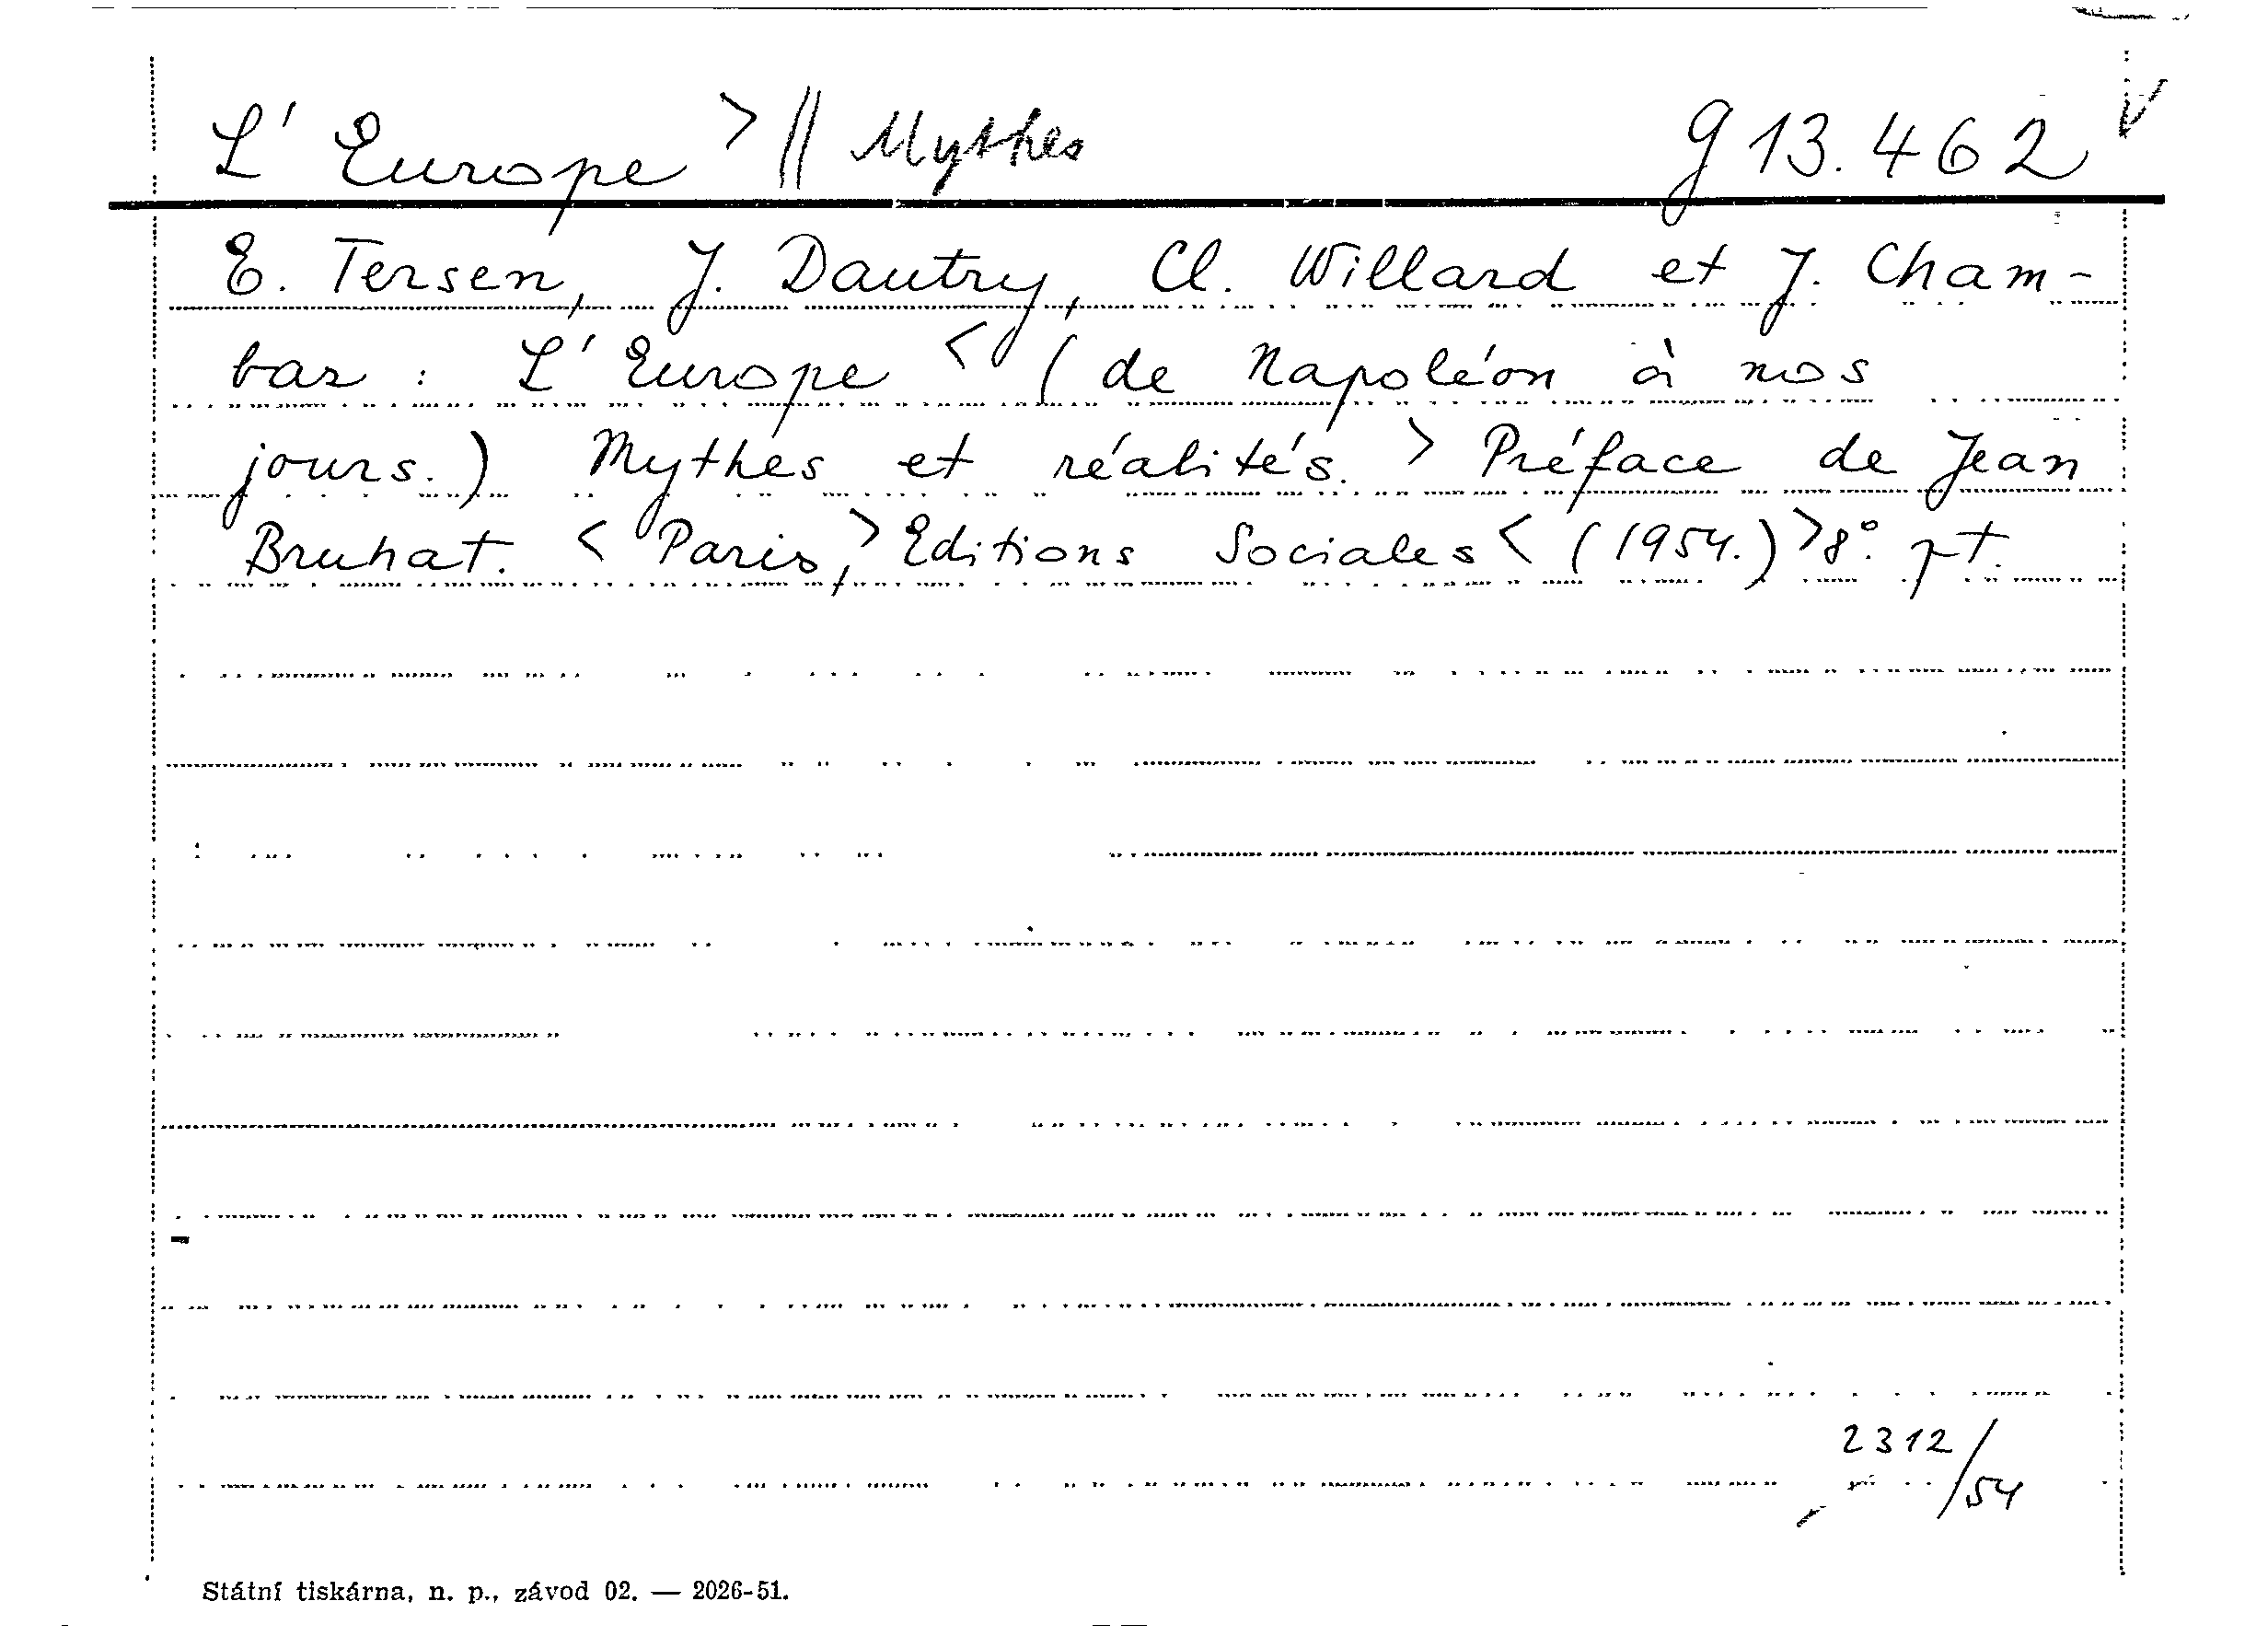 L' Europe > || Mythes g 13.462 V
E. Tersen, J. Dautry, Cl. Willard et J. Cham-
baz : L' Europe < (de Napoléon à nos
jours.) Mythes et réalités. > Préface de Jean
Bruhat. < Paris, > Editions Sociales < (1954.) > 8°. pt.
2312/54
Státní tiskárna, n. p., závod 02. — 2026-51.